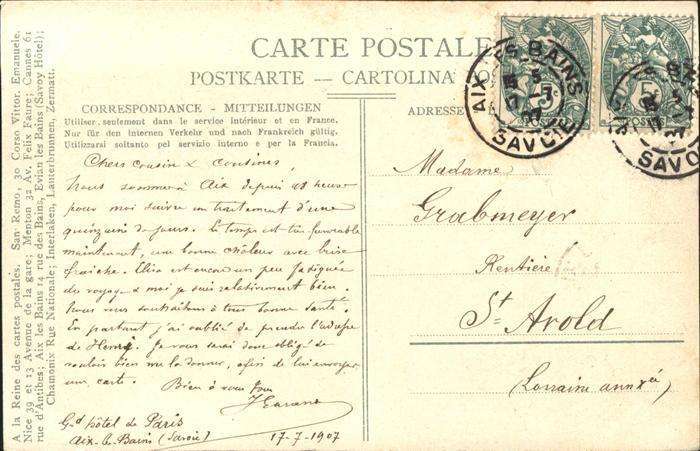 CARTE POSTALE
POSTKARTE — CARTOLINA
CORRESPONDANCE - MITTEILUNGEN
Utiliser seulement dans le service intérieur et en France.
Nur für den internen Verkehr und nach Frankreich gültig.
Utilizzarsi soltanto pel servizio interno e per la Francia.
ADRESSE
A la Reine des cartes postales. San Remo, 30 Corso Vittor. Emanuele.
Nice 39 et 13 Avenue de la gare; Menton 32 Av. Felix Faure; Cannes 61
rue d'Antibes; Aix les Bains 14 rue des Bains, Evian les Bains (Savoy Hôtel);
Chamonix Rue Nationale; Interlaken, Lauterbrunnen, Zermatt.
Chers cousin & cousines
Nous sommes à Aix depuis 48 heures
pour moi suivre un traitement d'une
quinzaine de jours. Le temps est très favorable
maintenant, une bonne chaleur avec brise
fraîche. est encore un peu fatiguée
du voyage & moi je suis relativement bien.
Nous vous souhaitons à tous bonne santé.
En partant j'ai oublié de prendre l'adresse
de Henri. Je vous serai donc obligé de
vouloir bien me la donner, afin de lui envoyer
une carte.
Bien à vous tous
Gd hôtel de Paris
Aix-les-Bains (Savoie) 17-7-1907
Madame
Grabmeyer
Rentière
St Avold
(Lorraine annxée)
AIX-LES-BAINS
SAVOIE
5
POSTES
SAVOIE